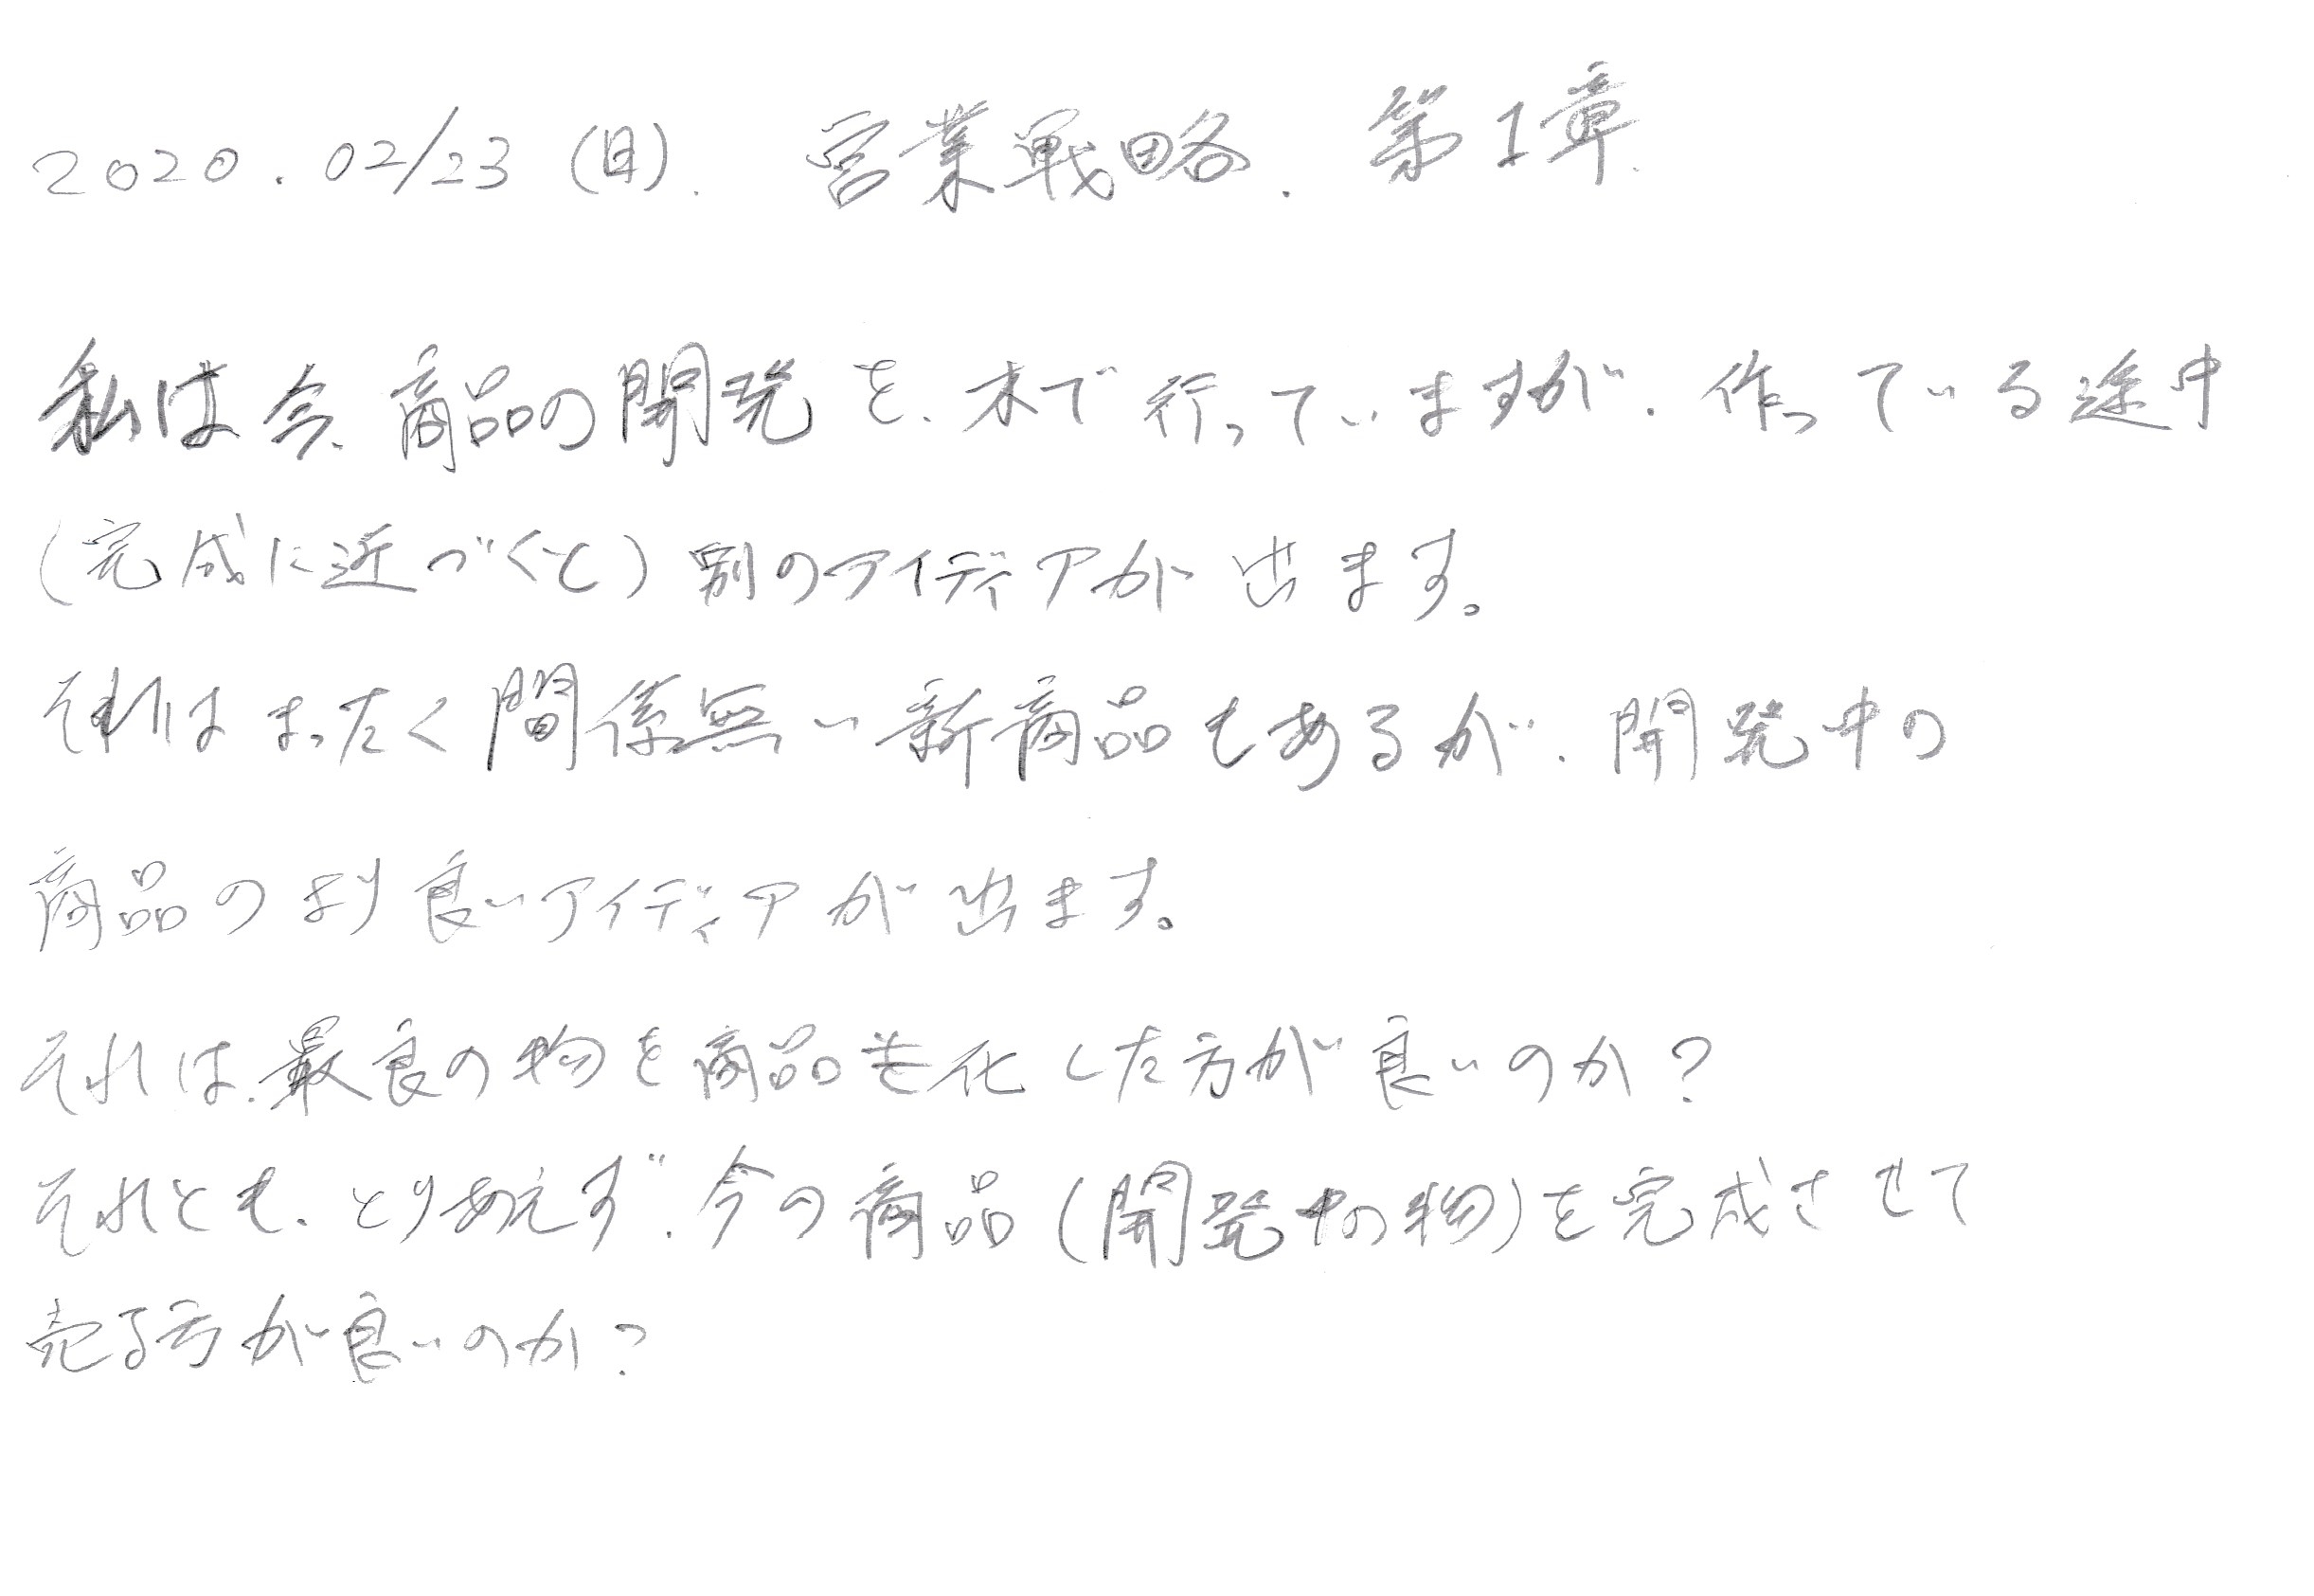 2020.02/23(日). 営業戦略. 第1章
私は今、商品の開発を、木で行っていますが、作っている途中
(完成に近づくと)別のアイディアが出ます。
それはまったく関係無い新商品もあるが、開発中の
商品のより良いアイディアが出ます。
それは、最良の物を商品化した方が良いのか?
それとも、とりあえず、今の商品(開発中の物)を完成させて
売る方が良いのか?